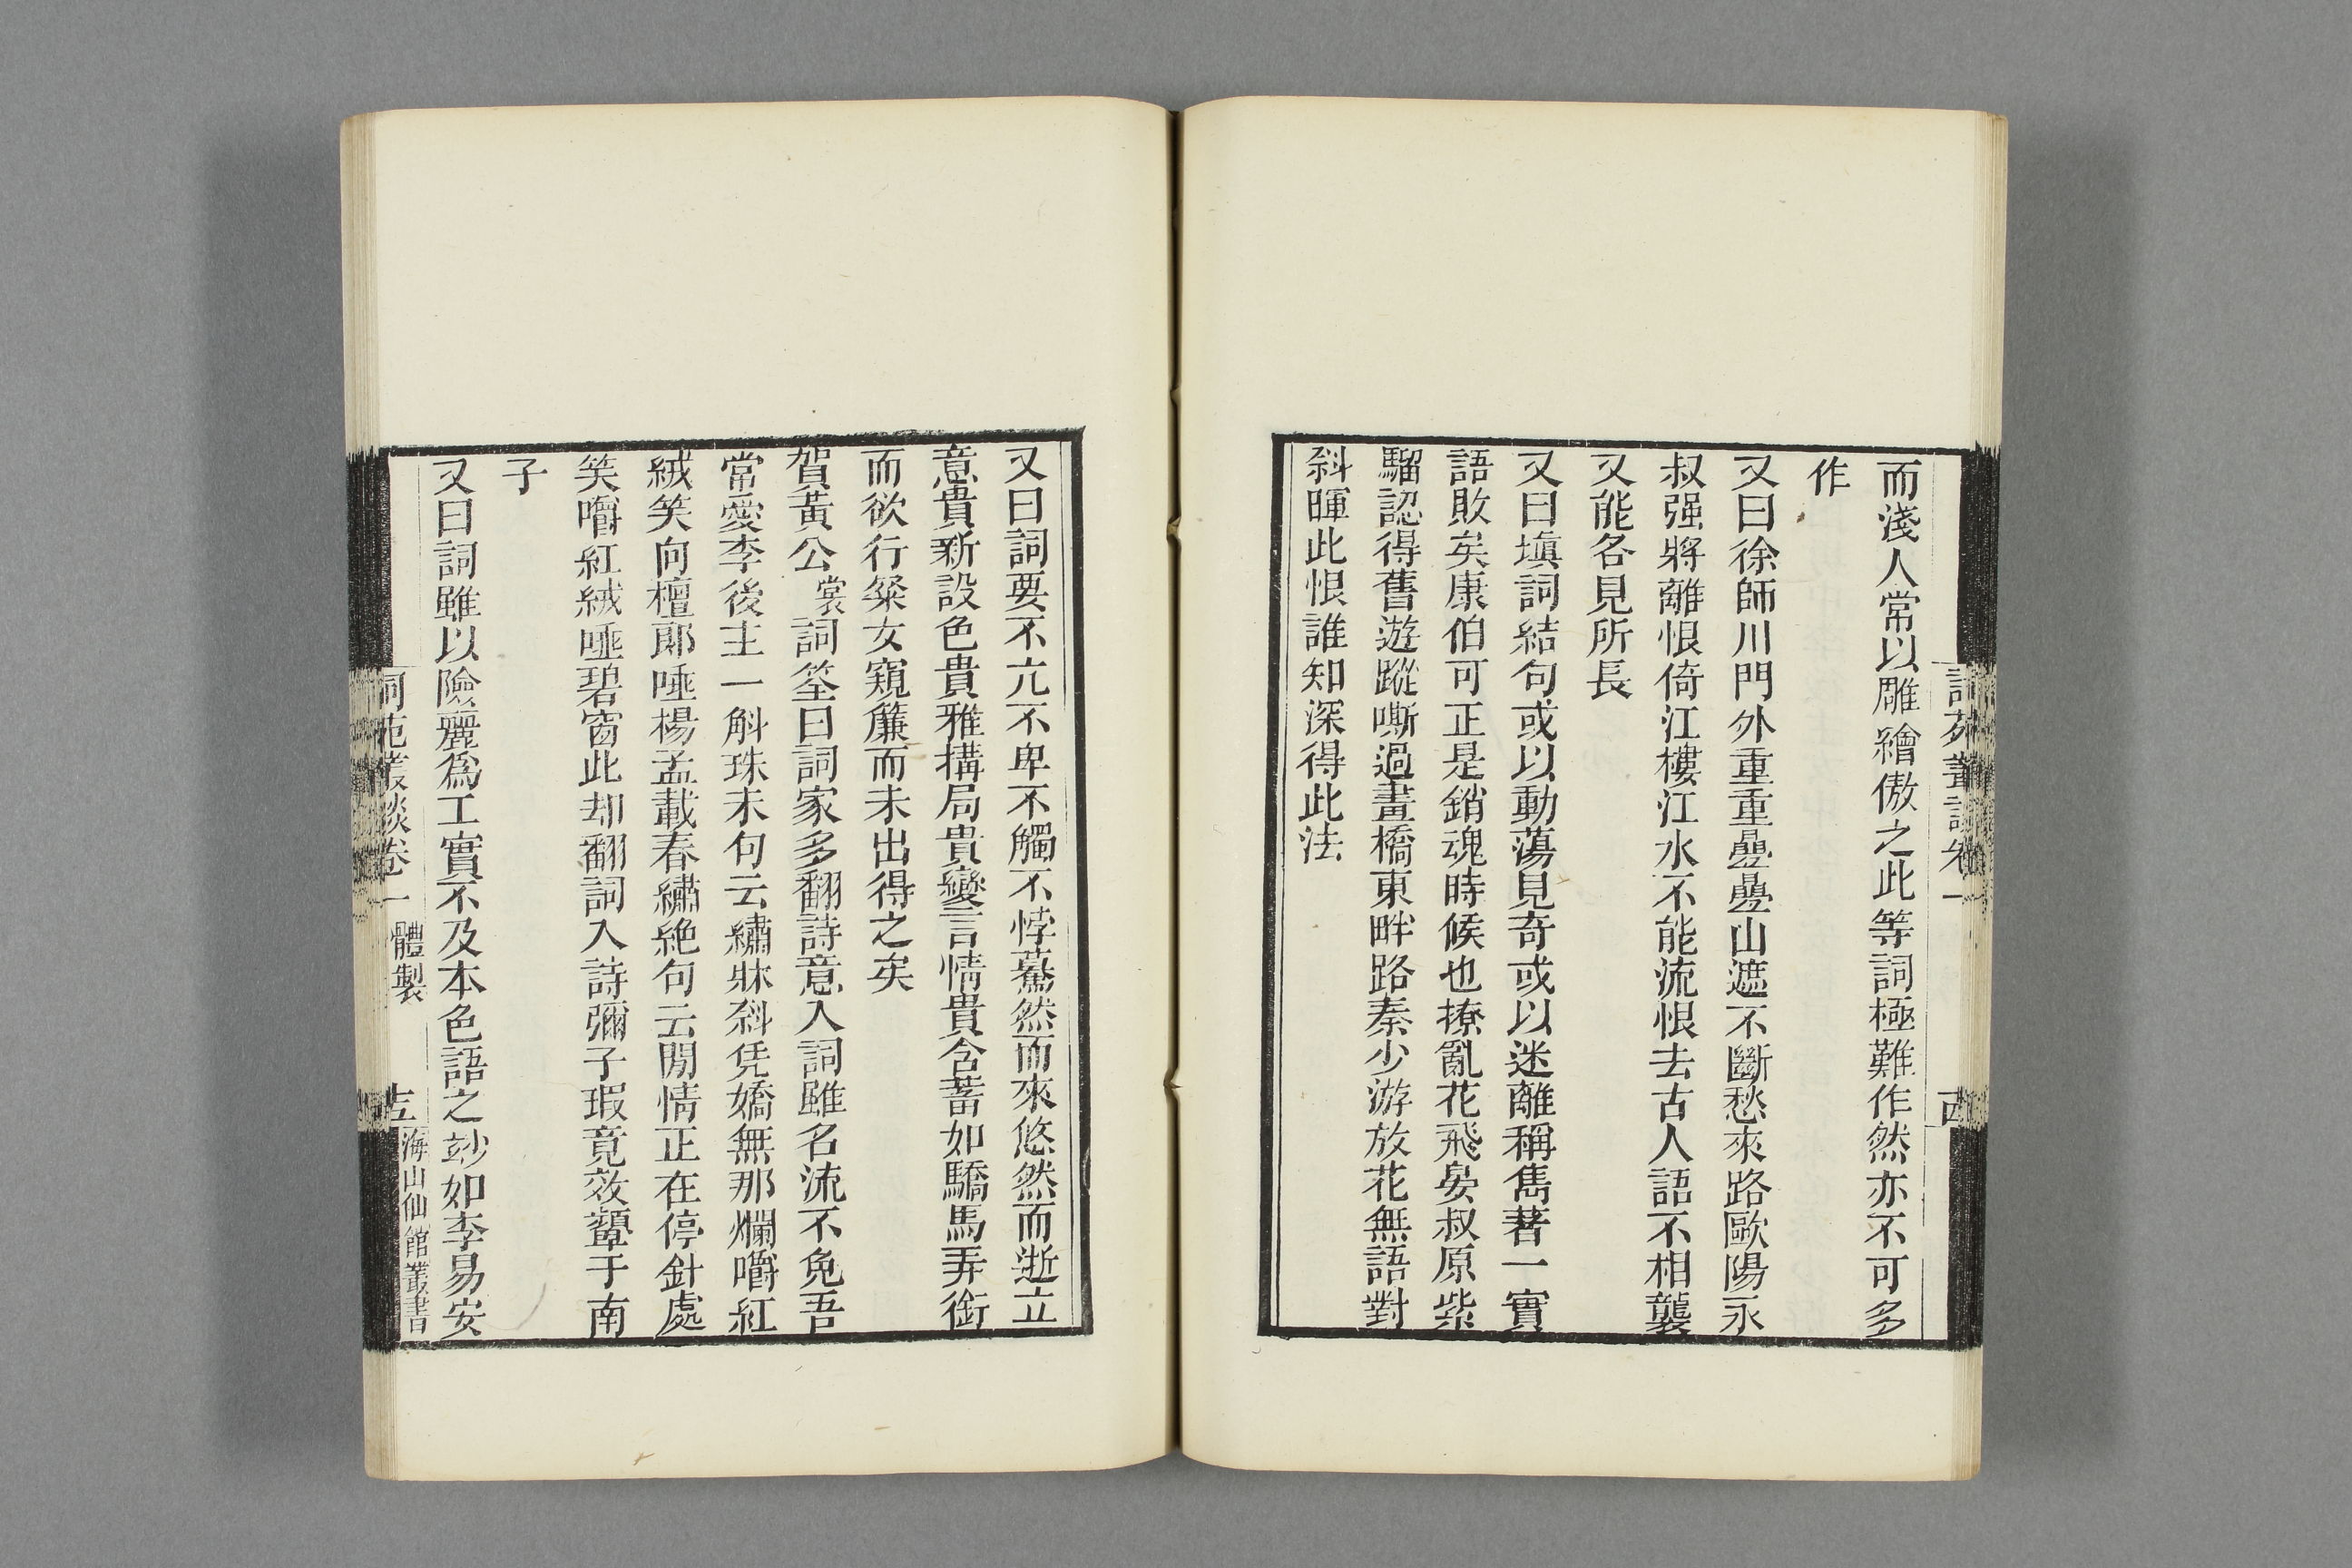 詞苑叢談卷一
而淺人常以雕繪傲之此等詞極難作然亦不可多
作
又曰徐師川門外重重疊疊山遮不斷愁來路歐陽永
叔强將離恨倚江樓江水不能流恨去古人語不相襲
又能各見所長
又曰塡詞結句或以動蕩見奇或以迷離稱雋著一實
語敗矣康伯可正是銷魂時候也撩亂花飛晏叔原紫
騮認得舊遊蹤嘶過畫橋東畔路秦少游放花無語對
斜暉此恨誰知深得此法
又曰詞要不亢不卑不觸不悖驀然而來悠然而逝立
意貴新設色貴雅搆局貴變言情貴含蓄如驕馬弄銜
而欲行粲女窺簾而未出得之矣
賀黃公裳詞筌曰詞家多翻詩意入詞雖名流不免吾
常愛李後主一斛珠末句云繡牀斜凭嬌無那爛嚼紅
絨笑向檀郞唾楊孟載春繡絶句云閒情正在停針處
笑嚼紅絨唾碧窗此却翻詞入詩彌子瑕竟效顰于南
子
又曰詞雖以險麗爲工實不及本色語之妙如李易安
詞苑叢談卷一 體製
海山仙館叢書